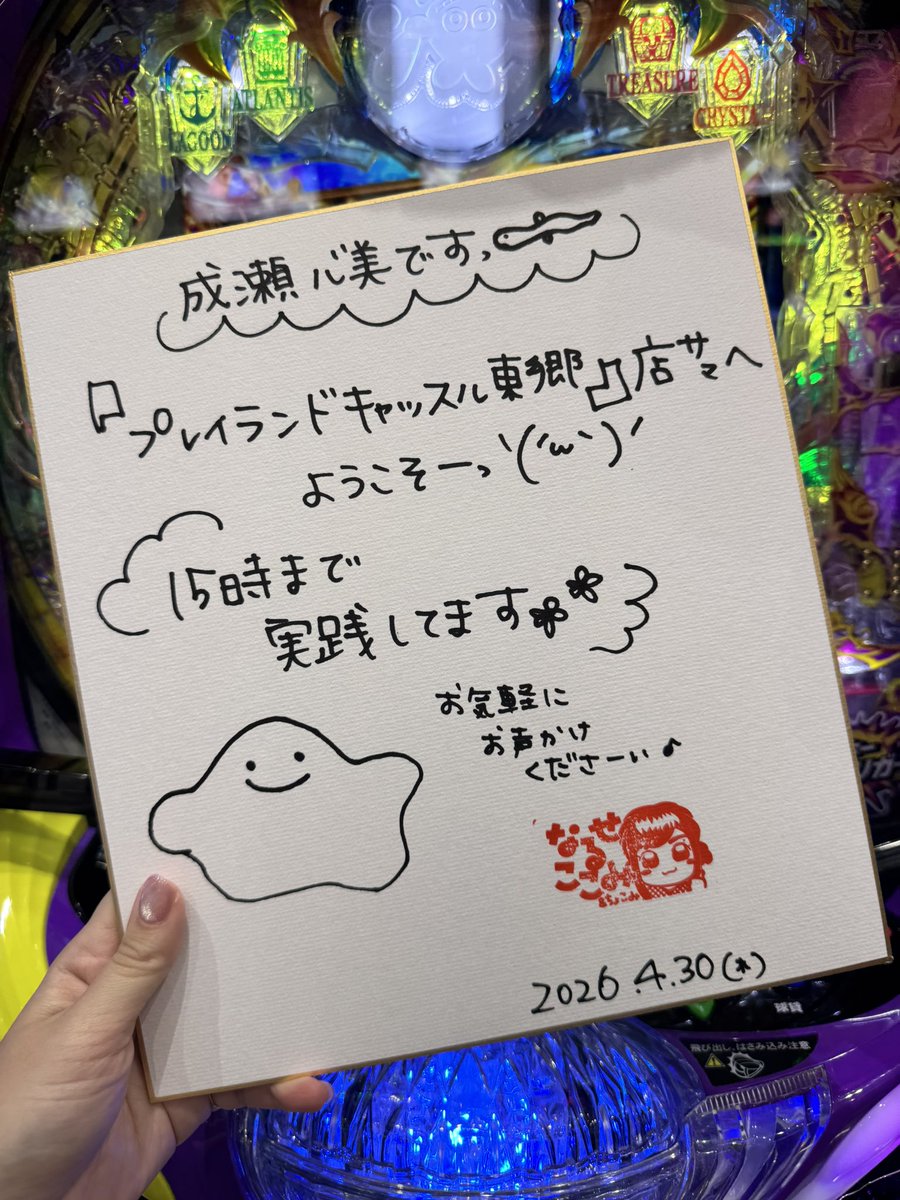 LAGOON
ATLANTIS
TREASURE
CRYSTA
成瀬心美ですっ
『プレイランドキャッスル東郷』店サマへ
ようこそーっ ヽ(´ω`)ノ
15時まで
実践してます
お気軽に
お声かけ
くださーい♪
なるせ
ここみ
2026.4.30(木)
球貸
飛び出し、はさみ込み注意